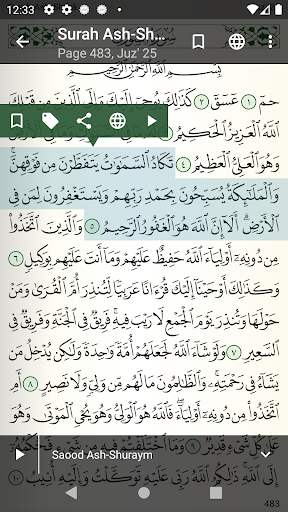 12:33
Surah Ash-Sh...
Page 483, Juz' 25
بِسْمِ اللَّهِ الرَّحْمَٰنِ الرَّحِيمِ
حمٓ ١ عٓسٓقٓ ٢ كَذَٰلِكَ يُوحِىٓ إِلَيْكَ وَإِلَى ٱلَّذِينَ مِن قَبْلِكَ
ٱللَّهُ ٱلْعَزِيزُ ٱلْحَكِيمُ
وَهُوَ ٱلْعَلِىُّ ٱلْعَظِيمُ ٤ تَكَادُ ٱلسَّمَٰوَٰتُ يَتَفَطَّرْنَ مِن فَوْقِهِنَّ ۚ
وَٱلْمَلَٰٓئِكَةُ يُسَبِّحُونَ بِحَمْدِ رَبِّهِمْ وَيَسْتَغْفِرُونَ لِمَن فِى
ٱلْأَرْضِ ۗ أَلَآ إِنَّ ٱللَّهَ هُوَ ٱلْغَفُورُ ٱلرَّحِيمُ ٥ وَٱلَّذِينَ ٱتَّخَذُوا۟
مِن دُونِهِۦٓ أَوْلِيَآءَ ٱللَّهُ حَفِيظٌ عَلَيْهِمْ وَمَآ أَنتَ عَلَيْهِم بِوَكِيلٍ
٦ وَكَذَٰلِكَ أَوْحَيْنَآ إِلَيْكَ قُرْءَانًا عَرَبِيًّا لِّتُنذِرَ أُمَّ ٱلْقُرَىٰ وَمَنْ
حَوْلَهَا وَتُنذِرَ يَوْمَ ٱلْجَمْعِ لَا رَيْبَ فِيهِ ۚ فَرِيقٌ فِى ٱلْجَنَّةِ وَفَرِيقٌ فِى
ٱلسَّعِيرِ ٧ وَلَوْ شَآءَ ٱللَّهُ لَجَعَلَهُمْ أُمَّةً وَٰحِدَةً وَلَٰكِن يُدْخِلُ مَن
يَشَآءُ فِى رَحْمَتِهِۦ ۚ وَٱلظَّٰلِمُونَ مَا لَهُم مِّن وَلِىٍّ وَلَا نَصِيرٍ ٨
أَمِ ٱتَّخَذُوا۟ مِن دُونِهِۦٓ أَوْلِيَآءَ ۖ فَٱللَّهُ هُوَ ٱلْوَلِىُّ وَهُوَ يُحْىِ ٱلْمَوْتَىٰ وَهُوَ
عَلَىٰ كُلِّ شَىْءٍ قَدِيرٌ ٩ وَمَا ٱخْتَلَفْتُمْ فِيهِ مِن شَىْءٍ فَحُكْمُهُۥٓ
Saood Ash-Shuraym
إِلَى ٱللَّهِ ۚ ذَٰلِكُمُ ٱللَّهُ رَبِّى عَلَيْهِ تَوَكَّلْتُ وَإِلَيْهِ أُنِيبُ ١٠
483